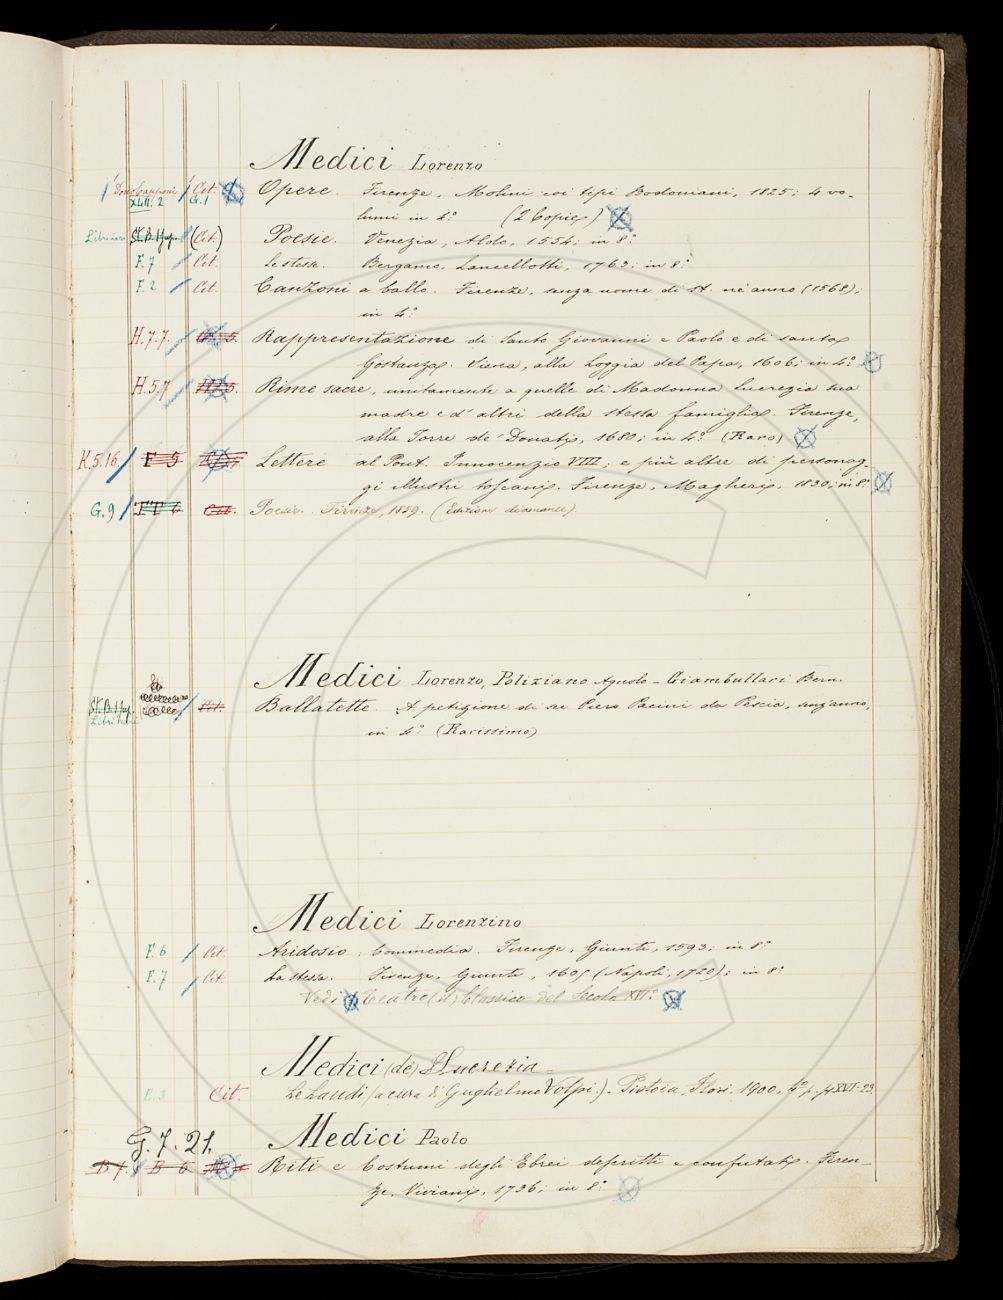 Medici Lorenzo
Dono Capponi Cit. Opere. Firenze, Molini coi tipi Bodoniani, 1825; 4 vo-
XLII. 2 G.1 lumi in 4.º (2 Copie)
Librini St. B. 1 sup. (Cit.) Poesie. Venezia, Aldo, 1554; in 8.º
F. 7 Cit. Le stesse. Bergamo, Lancellotti, 1763; in 8.º
F. 2 Cit. Canzoni a ballo. Firenze, senza nome di St. nè anno (1568);
in 4.º
H. 7. 7. Rappresentazione di Santo Giovanni e Paolo e di santa
Gostanza. Siena, alla Loggia del Papa, 1606; in 4.º
H. 5. 7 Rime sacre, unitamente a quelle di Madonna Lucrezia sua
madre e d' altri della stessa famiglia. Firenze,
alla Torre de' Donati, 1680; in 4.º (Raro)
K. 5. 16 F 5 Lettere al Pont. Innocenzio VIII; e più altre di personag-
gi illustri toscani. Firenze, Magheri, 1830; in 8.º
G. 9 Cit. Poesie. Firenze, 1859. (Edizione diamante).
Medici Lorenzo, Poliziano Agnolo - Giambullari Bern.
St. B. 1 sup. Cit. Ballatette. A petizione di se Piero Pacini da Pescia, senz'anno,
in 4.º (Rarissimo)
Medici Lorenzino
F. 6 Cit. Aridosio, Commedia. Firenze, Giunti, 1593; in 8.º
F. 7 Cit. La stessa. Firenze, Giunti, 1605 (Napoli, 1720); in 8.º
Vedi Teatro (il) Classico del Secolo XVI.º
Medici (de) Lucrezia =
E. 3 Cit. Le Laudi (a cura di Guglielmo Volpi). Pistoia, Flori, 1900, 4.º p. pp. XVI-23.
G. 7. 21. Medici Paolo
B 7. B 6 Riti e Costumi degli Ebrei descritti e confutati. Firen-
ze, Viviani, 1736; in 8.º